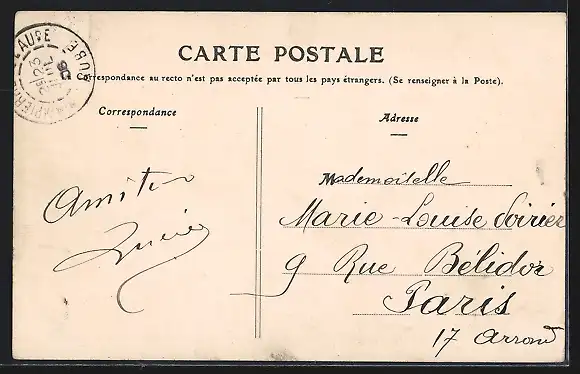 CARTE POSTALE
Correspondance au recto n'est pas acceptée par tous les pays étrangers. (Se renseigner à la Poste).
Correspondance
Adresse
Amitié
Lucie
Mademoiselle
Marie-Louise Poirier
9 Rue Bélidor
Paris
17 Arrond
EURE
23